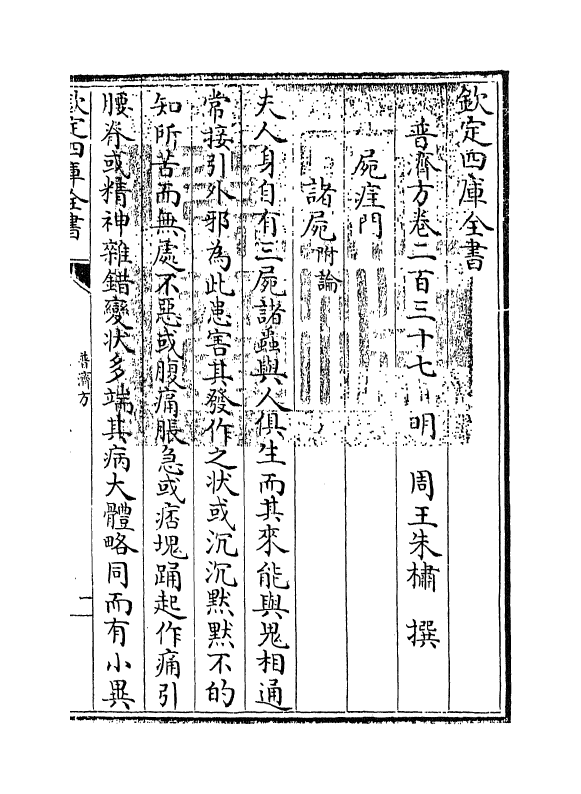 欽定四庫全書
普濟方卷二百三十七 明 周王朱橚 撰
屍疰門
諸屍附論
夫人身自有三屍諸蟲與人俱生而其來能與鬼相通
常接引外邪為此患害其發作之状或沉沉黙黙不的
知所苦而無處不惡或腹痛脹急或痞塊踊起作痛引
腰脊或精神雜錯變状多端其病大體略同而有小異
欽定四庫全書
普濟方
一